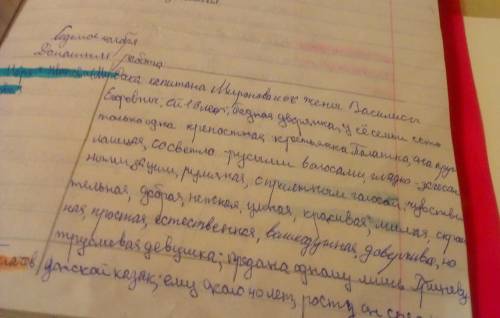 Седьмое ноября
Домашняя работа
капитана Миронова и его жены Василисы
Егоровны, ей 18 лет, бедная дворянка, у её семьи есть
только одна крепостная крестьянка Палашка, она кругло
лицая, со светло-русыми волосами, гладко-зачесан
ными за уши, румяная, с приятным голосом, чувстви
тельная, добрая, нежная, умная, красивая, милая, скром
ная, простая, естественная, великодушная, доверчива, но
трусливая девушка; предана одному лишь Гриневу
донской казак; ему около 40 лет, роста он